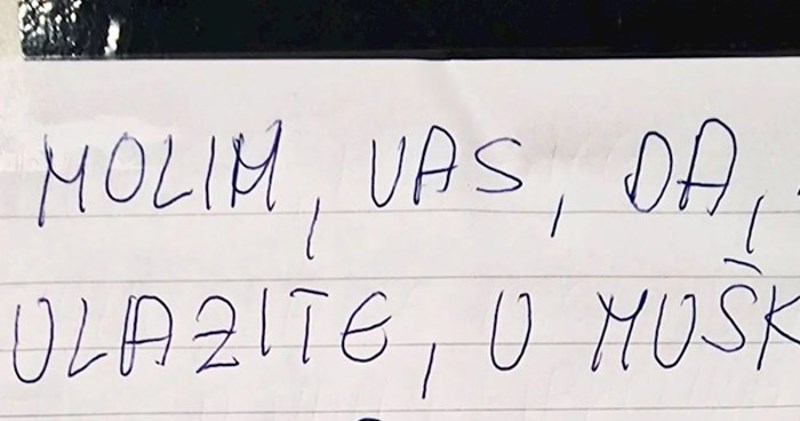 MOLIM, VAS, DA,
ULAZITE, U MUŠK